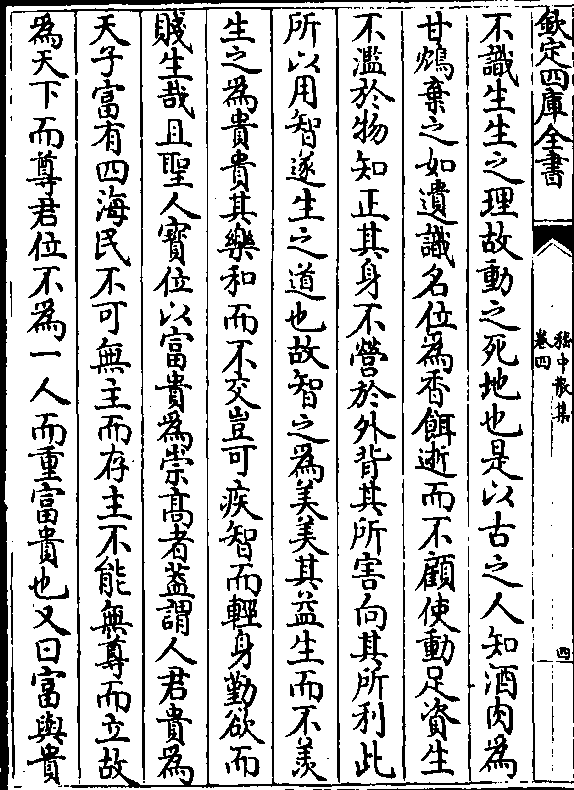 欽定四庫全書
嵇中散集
卷四
四
不識生生之理故動之死地也是以古之人知酒肉為
甘鴆棄之如遺識名位為香餌逝而不顧使動足資生
不濫於物知正其身不營於外背其所害向其所利此
所以用智遂生之道也故智之為美美其益生而不羨
生之為貴貴其樂和而不交豈可疾智而輕身勤欲而
賤生哉且聖人寳位以富貴為崇髙者葢謂人君貴為
天子富有四海民不可無主而存主不能無尊而立故
為天下而尊君位不為一人而重富貴也又曰富與貴